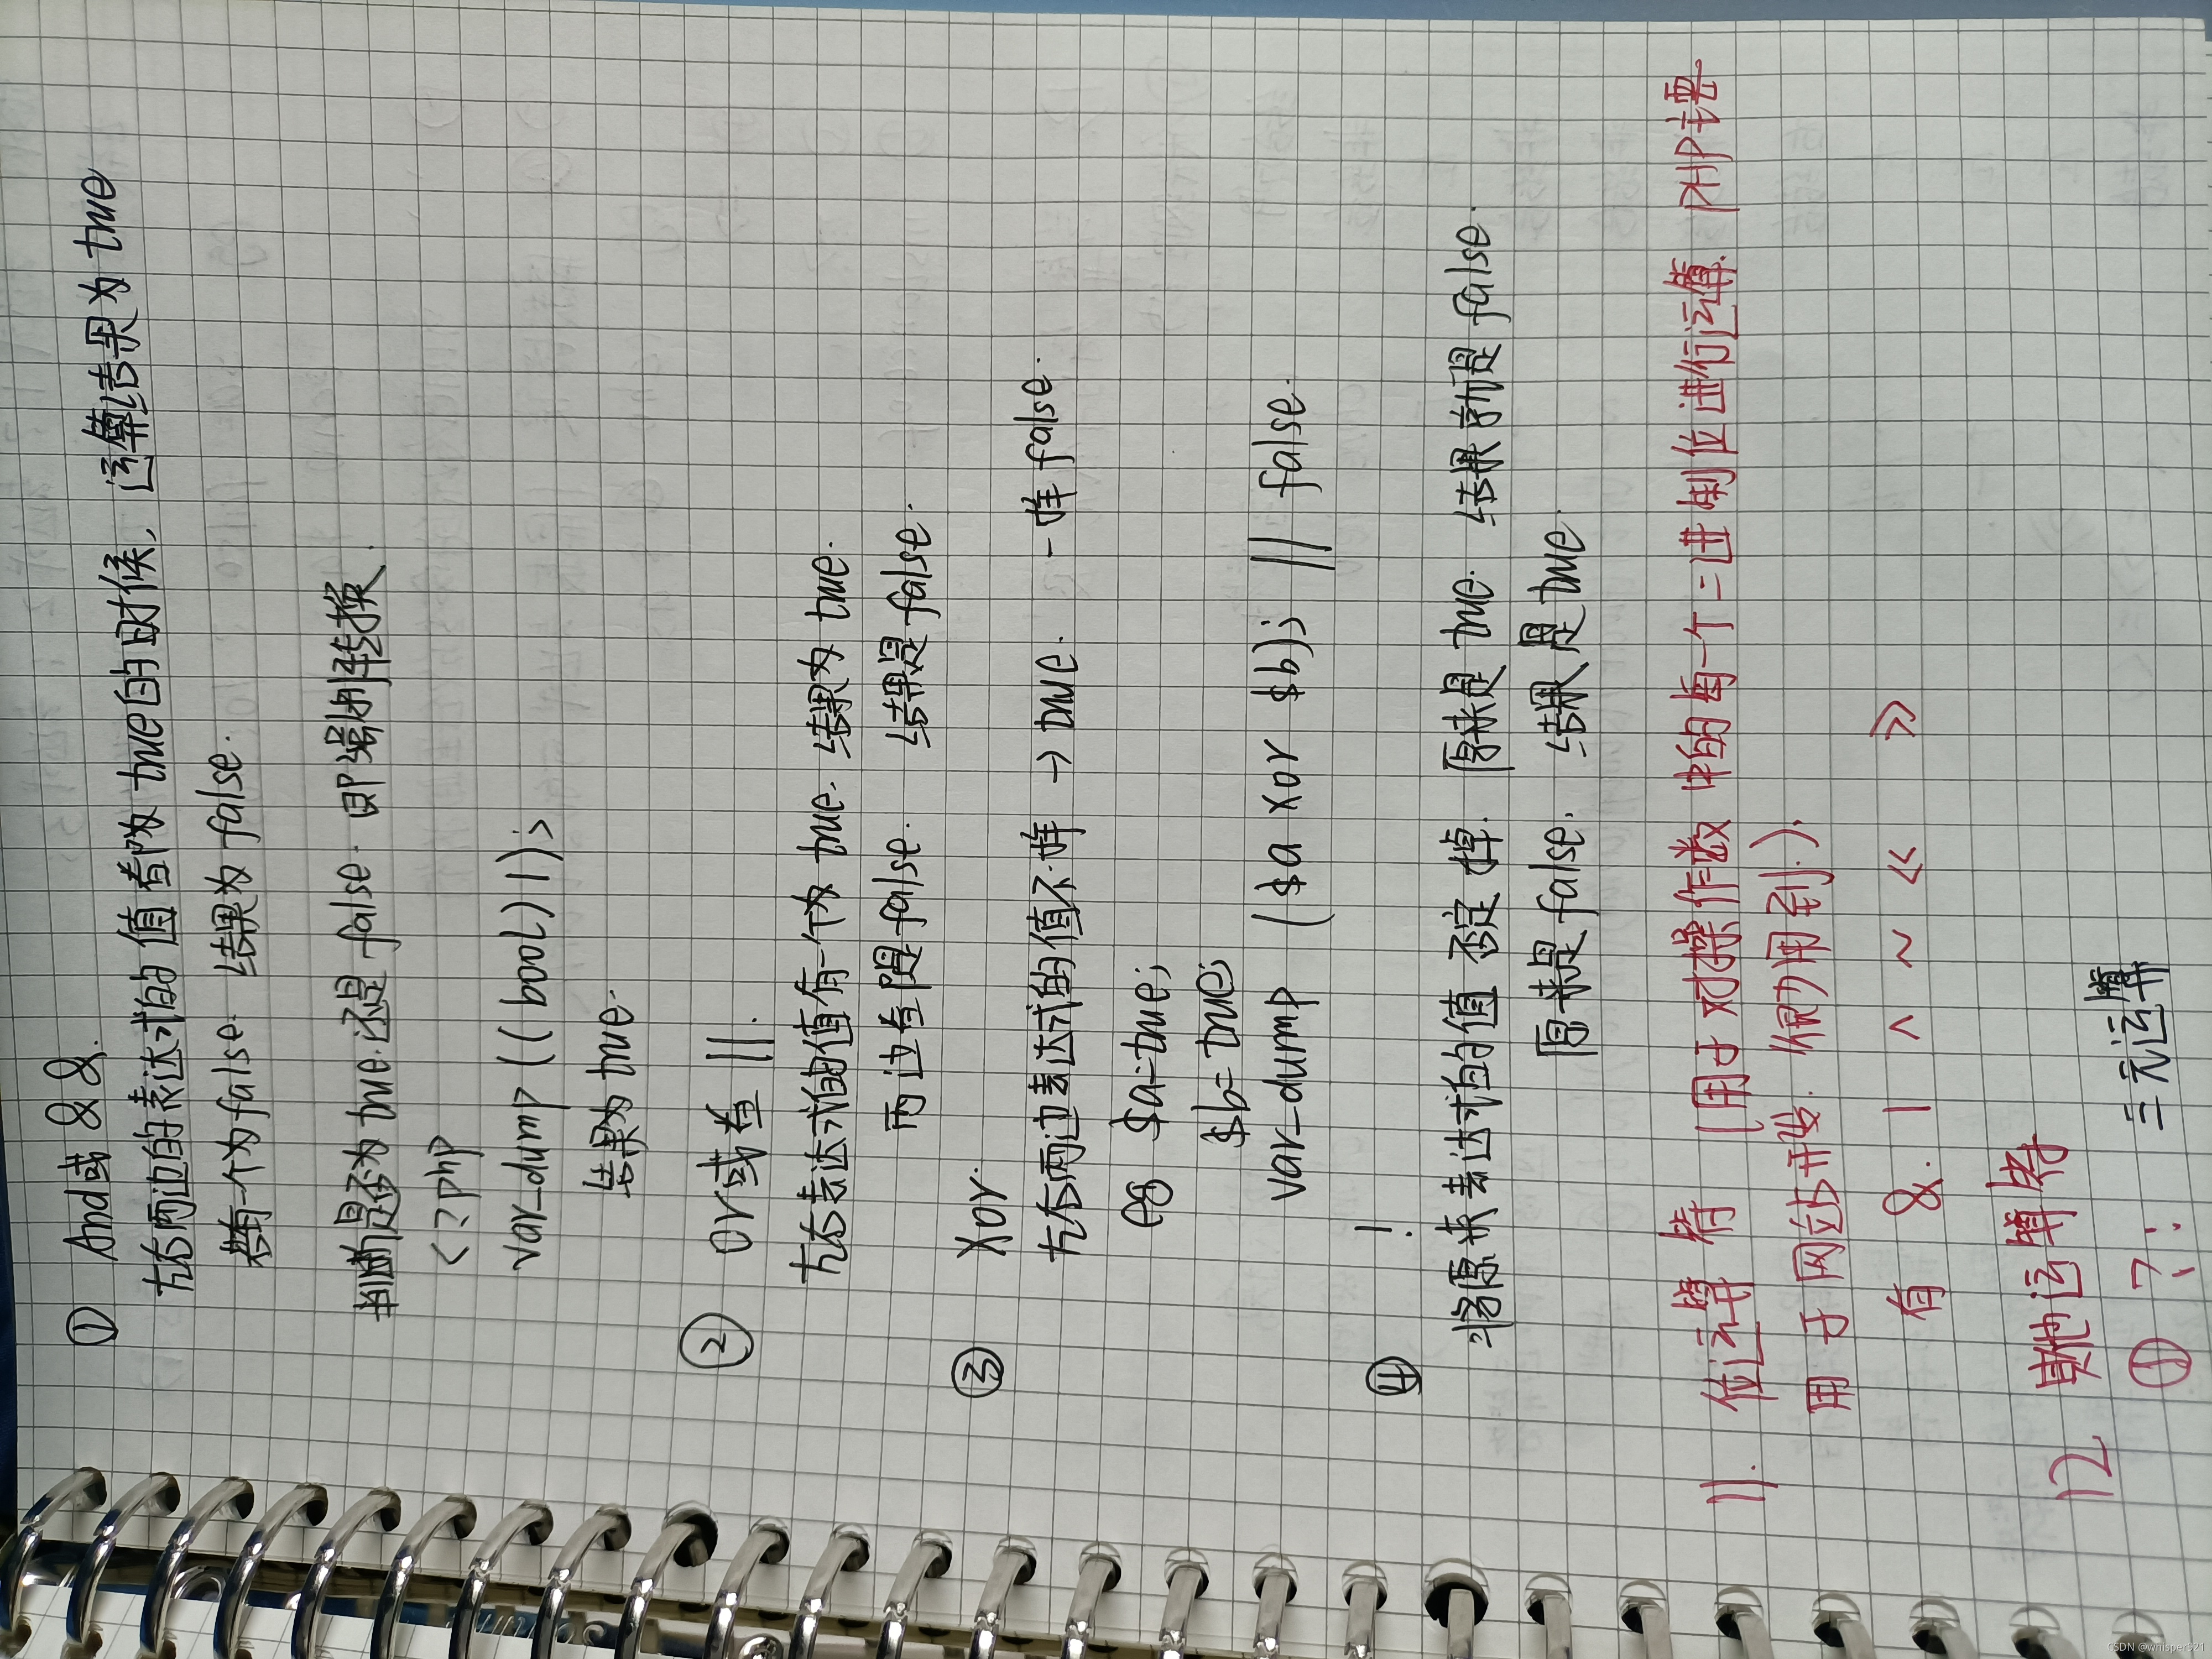 ① And或 &&.
左右两边的表达式的值都为true的时候，运算结果为true
若有一个为false. 结果为false.
判断是否为true还是false. 即强制转换.
<?php
var_dump((bool)1);
结果为true.
② or或者 ||.
左右表达式的值有一个为true. 结果为true.
两边全是false. 结果是false.
③ Xor.
左右两边表达式的值不一样 → true. 一样false.
eg $a=true;
$b=true;
var_dump ($a xor $b); || false.
④ !
将原来表达式的值否定掉. 原来是true. 结果就是false.
原来是false. 结果是true.
11. 位运算符 (用于对操作数中的每一个二进制位进行运算. PHP主要
用于网站开发. 很少用到.).
有 &. | ^ ~ << >>
12 其他运算符
① ?: 三元运算
CSDN @whisper921